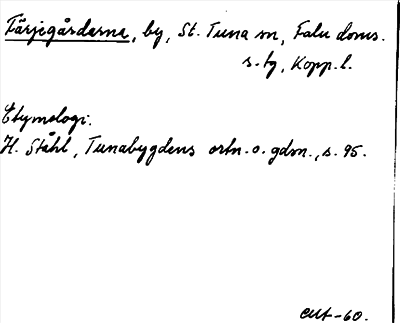 Färjegårdarna, by, St. Tuna sn, Falu doms.
s-tg, Kopp. l.
Etymologi.
H. Ståhl, Tunabygdens ortn. o. gdsn., s. 95.
-60.